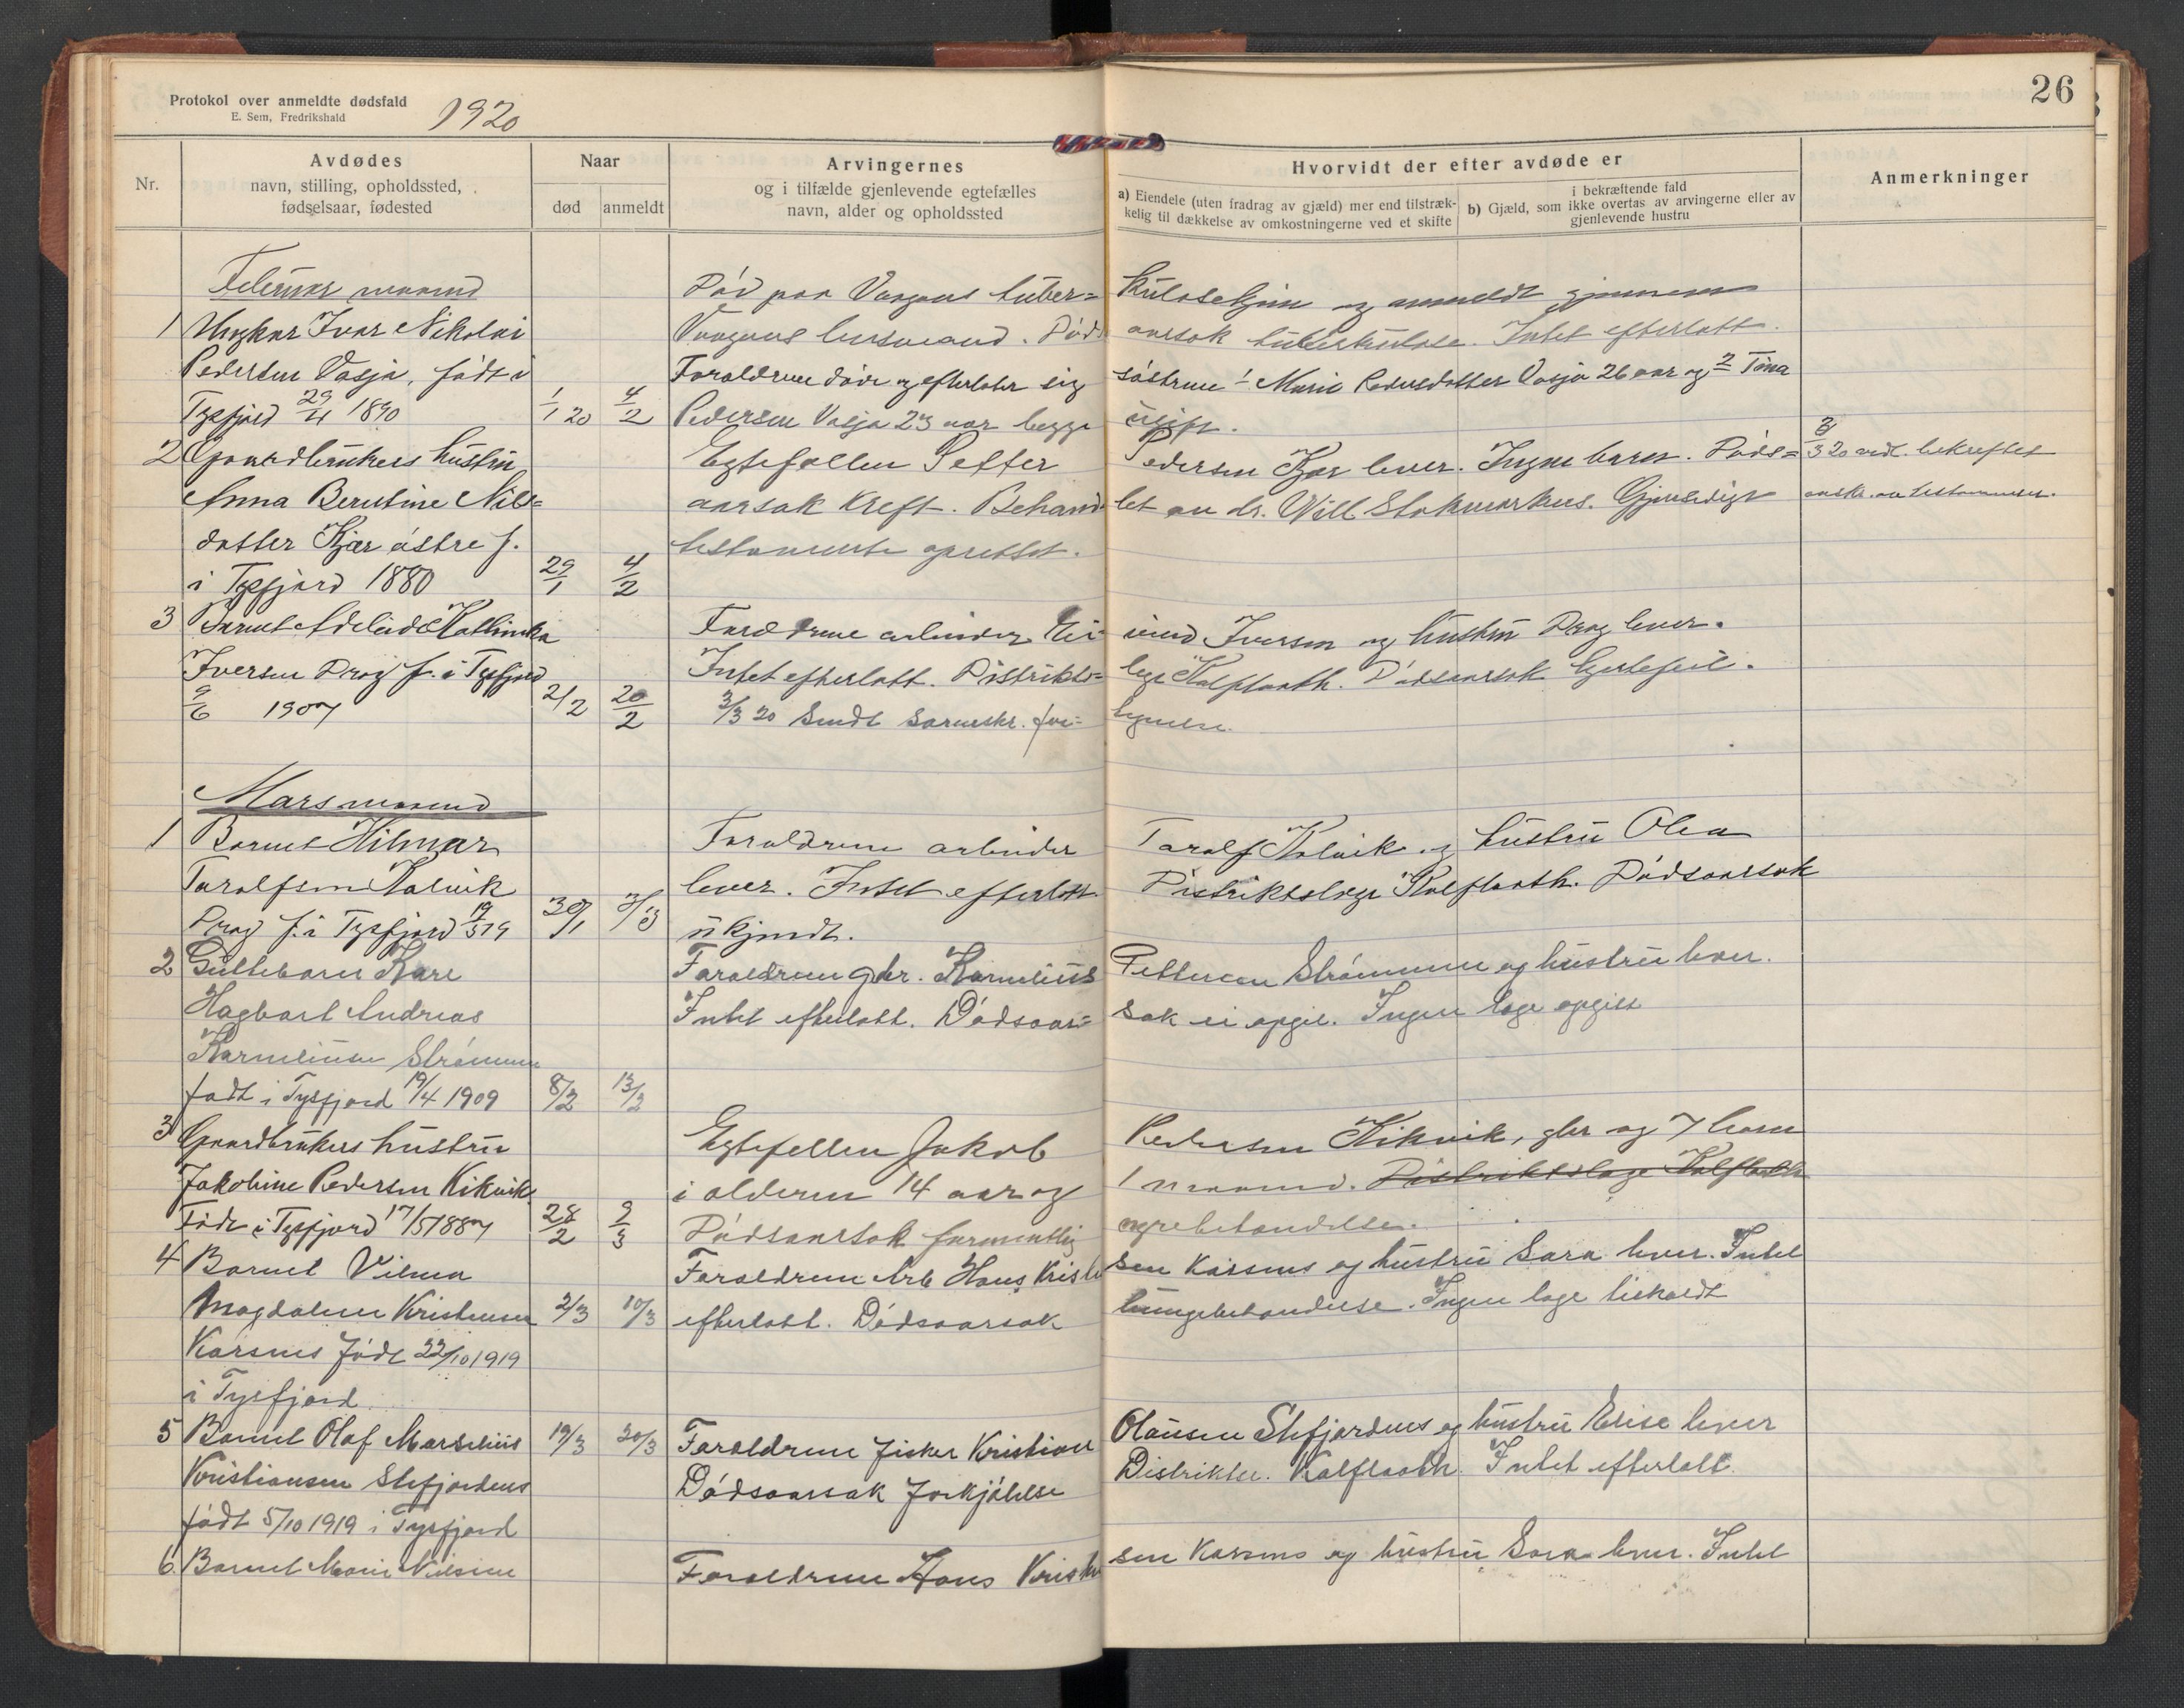 Protokol over anmeldte dødsfald
E. Sem, Fredrikshald
1920
26
Nr.
Avdødes
navn, stilling, opholdssted,
fødselsaar, fødested
Naar
død
anmeldt
Arvingernes
og i tilfælde gjenlevende egtefælles
navn, alder og opholdssted
Hvorvidt der efter avdøde er
a) Eiendele (uten fradrag av gjæld) mer end tilstræk-
kelig til dækkelse av omkostningerne ved et skifte
i bekræftende fald
b) Gjæld, som ikke overtas av arvingerne eller av
gjenlevende hustru
Anmerkninger
Februar maaned
Død paa Vaagans tuber= kulosehjem og anmeldt gjennem
1 Ungkar Ivar Nikolai Vaagans lensmand. Døds aarsak tuberkulose. Intet efterlatt.
Pedersen Vasja, født i Foraldrene døde og efterlater sig søstrene 1 Marie Pedersdatter Vasja 26 aar og 2 Tina
Tysfjord 29/4 1890 1/1 20 4/2 Pedersen Vasja 23 aar begge ugift.
2 Gaardbrukers hustru Egtefællen Petter Pedersen Kjær lever. Ingen barn. Døds= 3 20 bekreftet
Anna Berntine Nils= aarsak kreft. Behand let av dr. Will Stokmarknes. Gjensidigt avskr. av testamentet.
datter Kjær østre f. testamente oprettet.
i Tysfjord 1880 29/1 4/2
3 Barnet Adeleide Katlinka Foreldrene arbeider Ei vind Iversen og hustru Drag lever.
Iversen Drag f. i Tysfjord Intet efterlatt. Distrikts= lege Kalflaath. Dødsaarsak hjertefeil.
9/6 1907 2/2 20/2 2/3 20 Sendt sorenskr. fore= legnelse.
Mars maaned
1 Barnet Hilmar Foraldrene arbeider Toralf Kalvik og hustru Olea
Toralfsen Kalvik lever. Intet efterlatt Distriktslege Kalflaath. Dødsaarsak
Drag f. i Tysfjord 19/3 19 30/1 7/3 ukjendt.
2 Guttebarn Kare Foraldrene gbr. Kornelius Pettersen Strømmen og hustru lever.
Hagbart Andreas Intet efterlatt. Dødsaar= sak ei opgit. Ingen læge opgitt
Kornelius Strømmen
født i Tysfjord 19/4 1909 8/2 13/2
3 Gaardbrukers hustru Egtefellen Jakob Pedersen Kikvik, gbr og 7 barn
Jakobine Pedersen Kikvik i alderen 14 aar og 1 maaned. Distriktslæge Kalflaath
Født i Tysfjord 17/5 1887 28/2 9/3 Dødsaarsak formentlig
4 Barnet Vilma Foraldrene Arb Hans Kristen sen Korsnes og hustru Sara lever. Intet
Magdalena Kristensen 2/3 10/3 efterlatt. Dødsaarsak lungebetændelse. Ingen læge tilkaldt
Korsnes født 22/10 1919
i Tysfjord
5 Barnet Olaf Marselius 19/3 20/3 Foraldrene fisker Kristian Olausen Stefjordens og hustru Elise lever
Kristiansen Stefjordens Dødsaarsak forkjølelse Distriktsl. Kalflaath. Intet efterlatt.
født 5/10 1919 i Tysfjord
6 Barnet Marie Foraldrene Hans Kristen sen Korsnes og hustru Sara lever. Intet